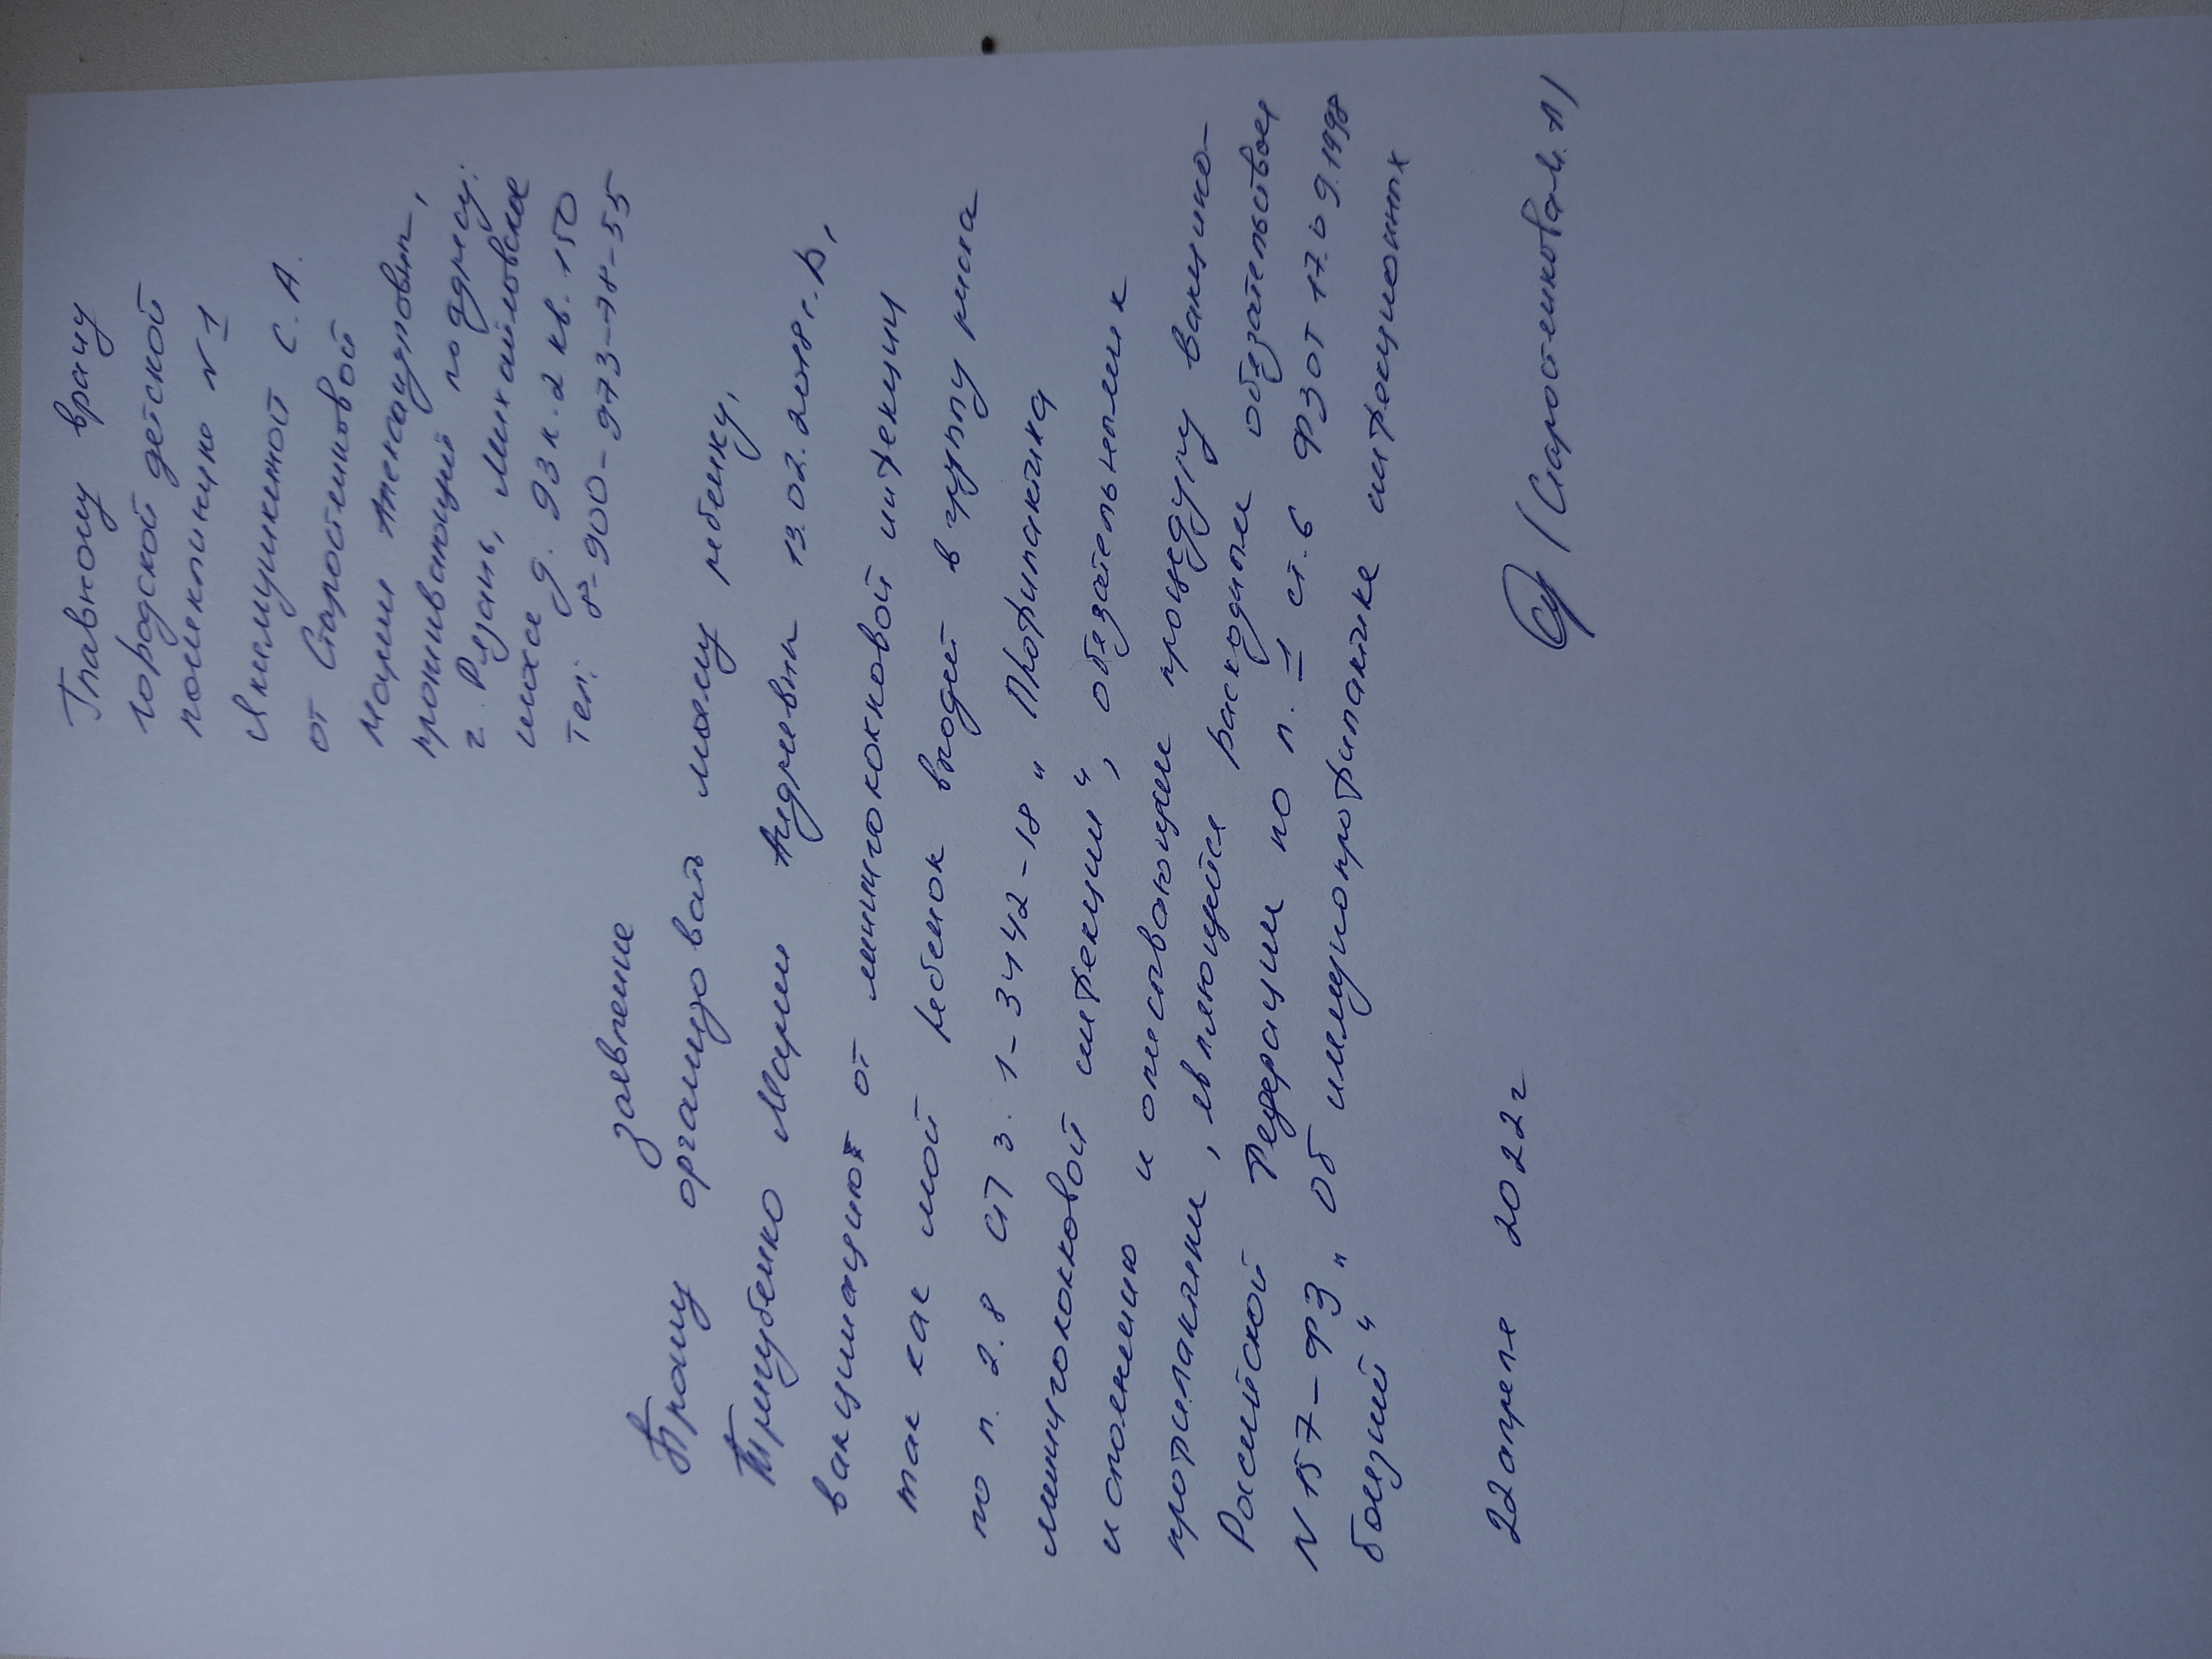 Главному врачу
городской детской
поликлиники №1
Якемушкиной С. А.
от Старостиковой
Марии Александровны,
проживающий по адресу:
г. Рязань, Михайловское
шоссе д. 93 к. 2 кв. 150
тел: 8-900-973-78-55
заявление
Прошу организовать моему ребенку,
Марии Андреевны 13.02.2018 г.р,
вакцинацию от менингококковой инфекции
так как мой ребенок входит в группу риска
по п. 2.8 СП 3.1-3542-18 "Профилактика
менингококковой инфекции", обязательными к
исполнению и описывающими процедуру вакцино-
профилактики, являющийся расходными обязательствами
Российской Федерации по п. 1 ст. 6 ФЗ от 17.09.1998
N157-ФЗ "Об иммунопрофилактике инфекционных
болезний"
22 апреля 2022 г